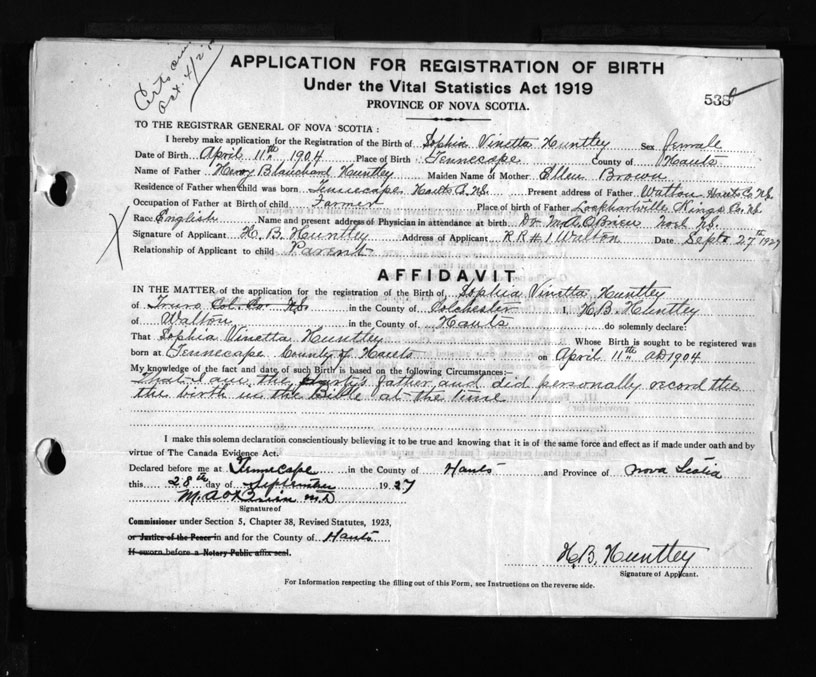 APPLICATION FOR REGISTRATION OF BIRTH
Under the Vital Statistics Act 1919
PROVINCE OF NOVA SCOTIA.
538
Oct. 4/27
TO THE REGISTRAR GENERAL OF NOVA SCOTIA:
I hereby make application for the Registration of the Birth of Sophia Vinetta Huntley Sex female
Date of Birth April 11th 1904 Place of Birth Tennecape County of Hants
Name of Father Henry Blanchard Huntley Maiden Name of Mother Ellen Brown
Residence of Father when Child was born Tennecape Hants Co. N.S. Present address of Father Walton Hants Co N.S.
Occupation of Father at Birth of child Farmer Place of birth of Father Kings Co. N.S.
Race English Name and present address of Physician in attendance at birth Dr M.A. O'Brien Noel N.S.
Signature of Applicant H. B. Huntley Address of Applicant R R # 1 Walton Date Sept 27th 1927
Relationship of Applicant to child Parent
AFFIDAVIT
IN THE MATTER of the application for the registration of the Birth of Sophia Vinetta Huntley
of Truro Col. Co. N.S. in the County of Colchester I, H B. Huntley
of Walton in the County of Hants do solemnly declare:
That Sophia Vinetta Huntley Whose Birth is sought to be registered was
born at Tennecape County of Hants on April 11th AD 1904
My knowledge of the fact and date of such Birth is based on the following Circumstances:—
That I am the party's father and did personally record the
the birth in the Bible at the time
I make this solemn declaration conscientiously believing it to be true and knowing that it is of the same force and effect as if made under oath and by
virtue of The Canada Evidence Act.
Declared before me at Tennecape in the County of Hants and Province of Nova Scotia
this 28th day of September 1927
M. A. O'Brien M.D
Signature of
Commissioner under Section 5, Chapter 38, Revised Statutes, 1923,
or Justice of the Peace in and for the County of Hants
If sworn before a Notary Public affix seal.
H. B. Huntley
Signature of Applicant.
For Information respecting the filling out of this Form, see Instructions on the reverse side.